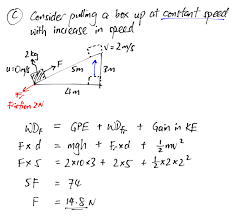 (C) Consider pulling a box up at constant speed
with increase in speed
v = 2m/s
2kg
u = 0m/s
F
5m
3m
4m
Friction 2N
WD_F = GPE + WD_fr + Gain in KE
F x d = mgh + Fr x d + ½mv²
F x 5 = 2x10x3 + 2x5 + ½x2x2²
5F = 74
F = 14.8 N